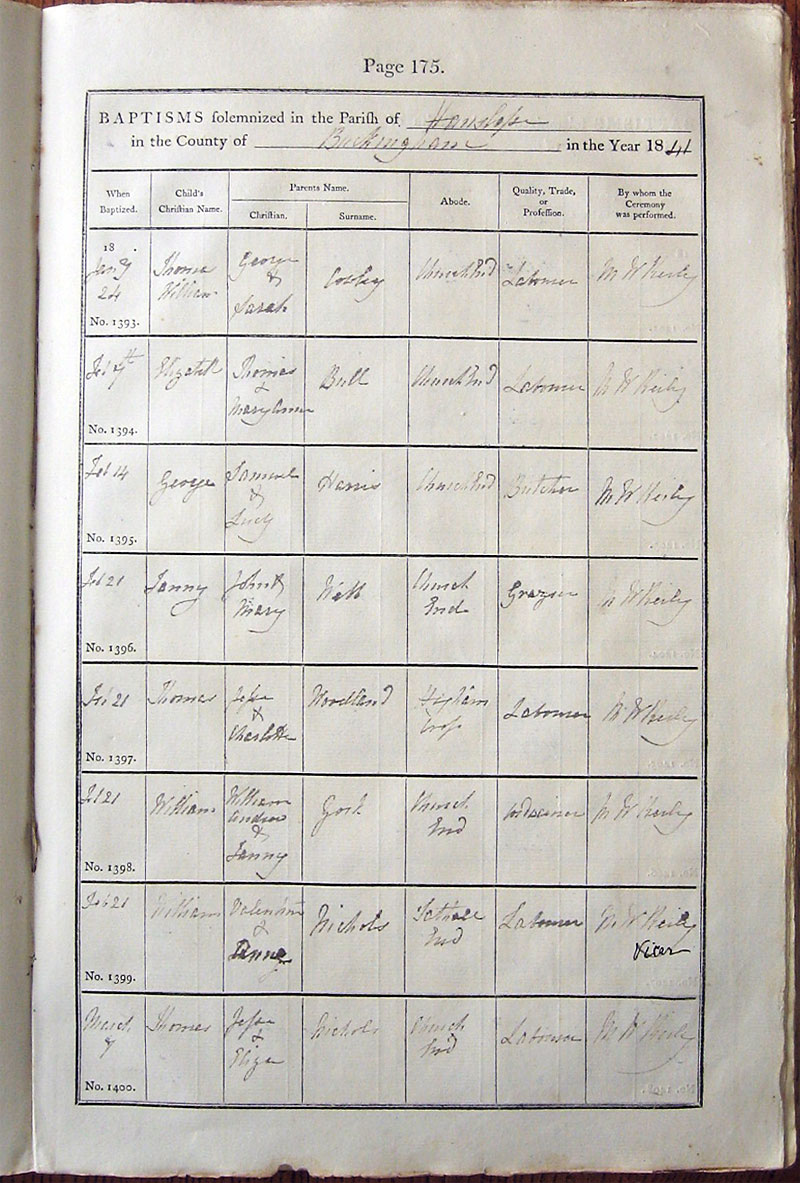 Page 175.
BAPTISMS solemnized in the Parish of Hanslope
in the County of Buckingham in the Year 1841
When Baptized.
Child's Christian Name.
Parents Name.
Christian.
Surname.
Abode.
Quality, Trade, or Profession.
By whom the Ceremony was performed.
18
Jany 24
No. 1393.
Thomas William
George & Sarah
Church End
Labourer
M W Heily
Feb 7th
No. 1394.
Elizabeth
Thomas & Mary Anne
Bull
Church End
Labourer
M W Heily
Feb 14
No. 1395.
George
Samuel & Lucy
Harris
Church End
Butcher
M W Heily
Feb 21
No. 1396.
Fanny
John & Mary
Church End
Grazier
M W Heily
Feb 21
No. 1397.
Thomas
Jesse & Charlotte
Woodland
Higham Cross
Labourer
M W Heily
Feb 21
No. 1398.
William
William Andrew & Fanny
Church End
M W Heily
Feb 21
No. 1399.
William
Valentine & Anne
Nichols
Tathall End
Labourer
M W Heily Vicar
March 7
No. 1400.
Thomas
Jesse & Eliza
Nichols
Church End
Labourer
M W Heily